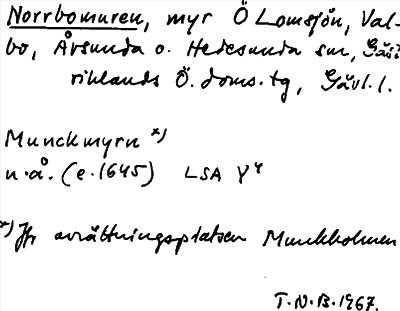 Norrbomuren, myr Ö Lomsjön, Val-
bo, Årsunda o. Hedesunda snr, Gäst
riklands Ö. doms.tg, Gävl. l.
Munckmyrn x)
n.å. (e.1645) LSA Y4
x) Jfr avrättningsplatsen Munkholmen
T.N.B.1967.